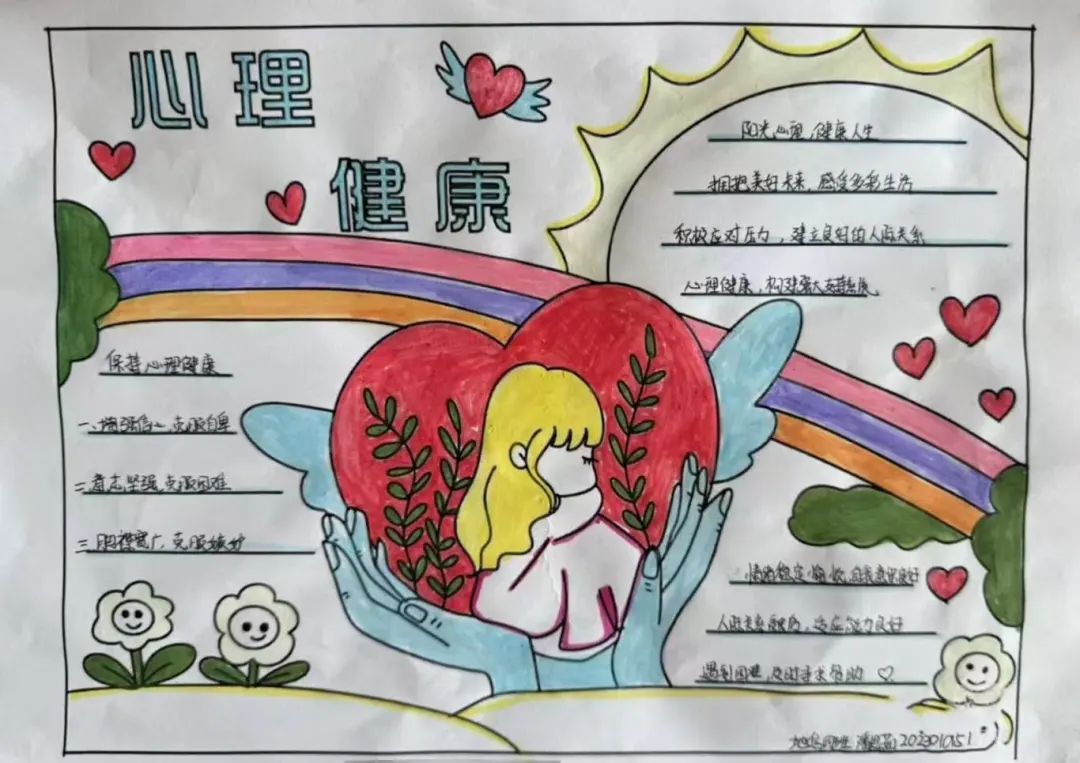 心理
健康
阳光心理,健康人生
拥抱美好未来,感受多彩生活
积极应对压力,建立良好的人际关系
心理健康,构建强大
保持心理健康
一、增强信心 克服自卑
二、意志坚强 克服困难
三、胸襟宽广 克服嫉妒
情绪稳定愉悦,自我意识良好
人际关系融洽,适应能力良好
遇到困难,及时寻求帮助